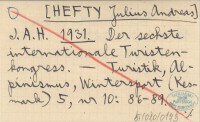 [HEFTY Julius Andreas]
J. A. H. 1931. Der sechste
internationale Touristen-
kongress. — Turistik, Al-
pinismus, Wintersport (Kes-
mark) 5, nr 10: 86-89.